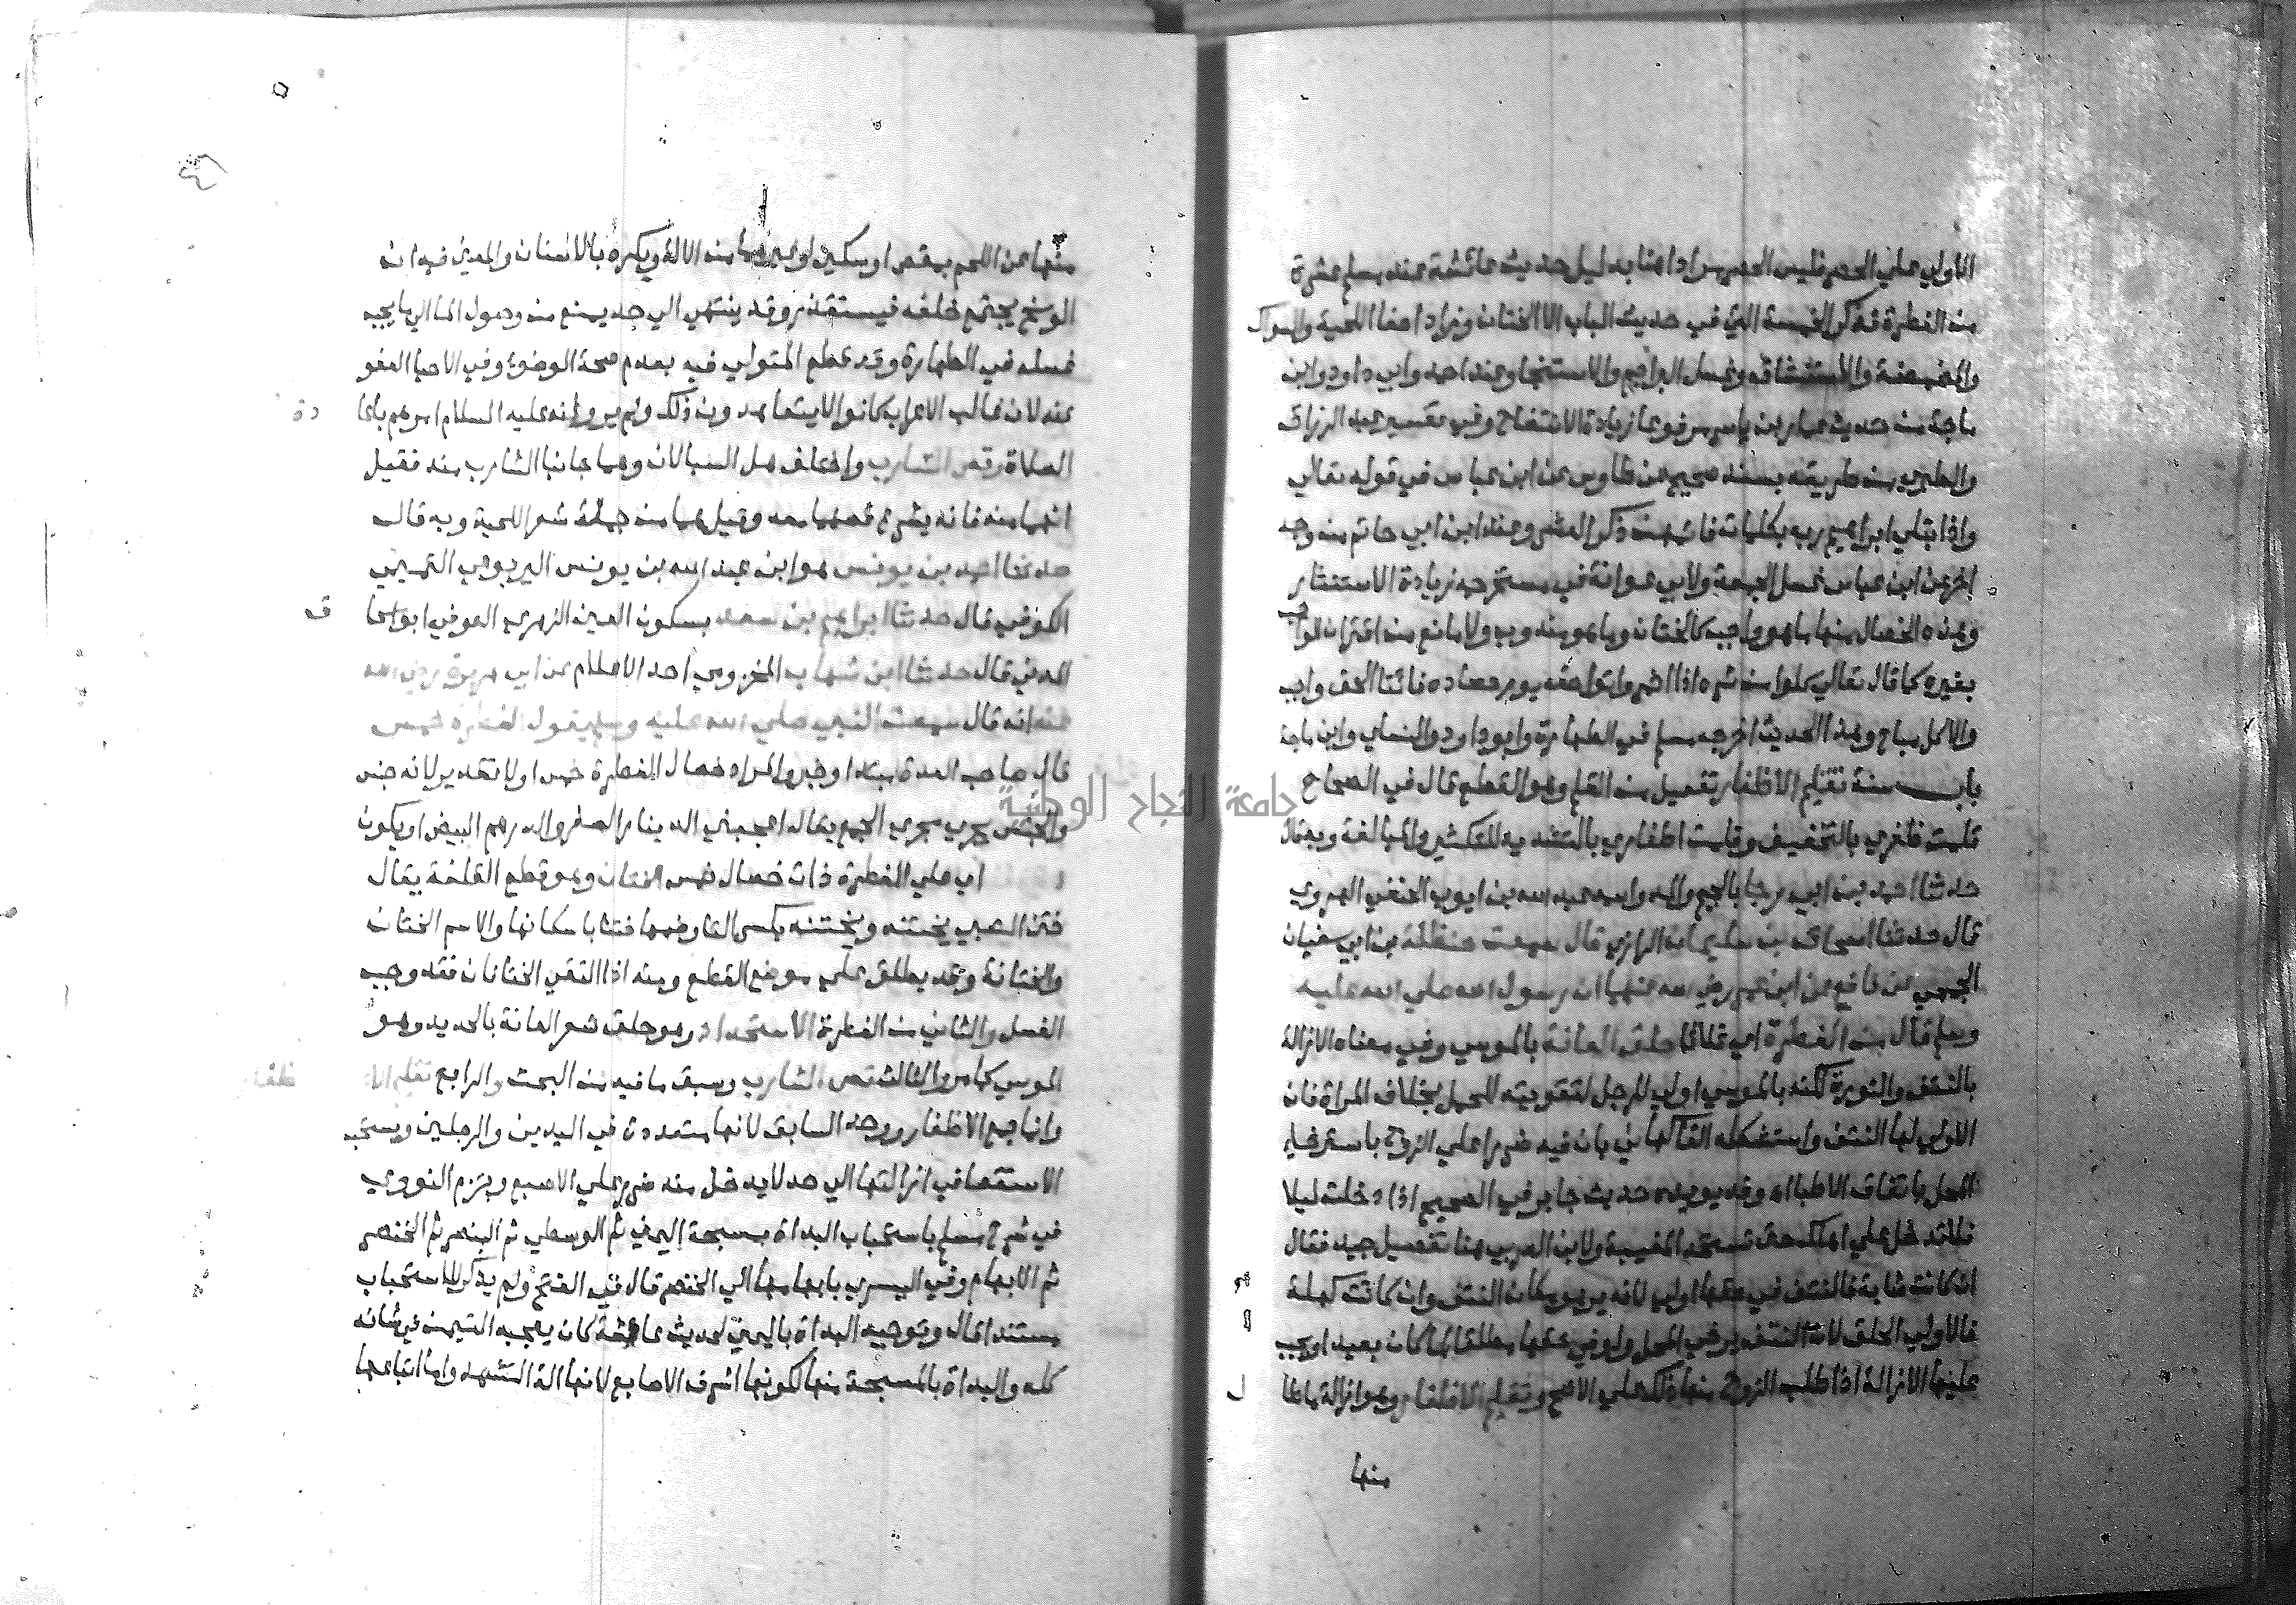 الاولي علي الحصر فليس الحصر مرادا هنا بدليل حديث عائشة عند مسلم عشرة
من الفطرة فذكر الخمسة التي في حديث الباب الا الختان وزاد اعفا اللحية والسواك
والمضمضة والاستنشاق وغسل البراجم والاستنجا وعند احمد وابي داود وابن
ماجة من حديث عمار بن ياسر مرفوعا زيادة الانتضاح وفي تفسير عبد الرزاق
والطبري من طريقه بسند صحيح عن طاوس عن ابن عباس في قوله تعالي
واذا ابتلي ابراهيم ربه بكلمات فاتمهن ذكر العشر وعند ابن ابي حاتم من وجه
اخر عن ابن عباس غسل الجمعة ولابي عوانة في مستخرجه زيادة الاستنثار
وهذه الخصال منها ما هو واجب كالختان وما هو مندوب ولا مانع من اقتران الواجب
بغيره كما قال تعالي كلوا من ثمره اذا اثمر واتوا حقه يوم حصاده فايتا الحق واجب
والاكل مباح وهذا الحديث اخرجه مسلم في الطهارة وابو داود والنساي وابن ماجة
باب سنة تقليم الاظفار تفعيل من القلم وهو القطع قال في الصحاح
قلمت ظفري بالتخفيف وقلمت اظفاري بالتشديد للتكثير والمبالغة وبه قال
حدثنا احمد بن ابي رجا بالجيم والمد واسمه عبد الله بن ايوب الحنفي الهروي
قال حدثنا اسحاق بن سليمان الرازي قال سمعت حنظلة بن ابي سفيان
الجمحي عن نافع عن ابن عمر رضي الله عنهما ان رسول الله صلي الله عليه
وسلم قال من الفطرة اي حلق العانة بالموسي وفي معناه الازالة
بالنتف والنورة لكنه بالموسي اولي للرجل لتقويته للمحل بخلاف المراة فان
الاولي لها النتف واستشكله الفاكهاني بان فيه ضررا علي الزوج باسترخا
المحل باتفاق الاطبا اه وقد يويده حديث جابر في الصحيح اذا دخلت ليلا
فلا تدخل علي اهلك حتي تستحد المغيبة ولابن العربي هنا تفصيل جيد فقال
ان كانت شابة فالنتف في حقها اولي لانه يربو مكان النتف وان كانت كهلة
فالاولي الحلق لان النتف يرخي المحل ولو قيل في حقها مطلقا لما كان بعيدا ويجب
عليها الازالة اذا طلب الزوج منها ذلك علي الاصح وتقليم الاظفار وهو ازالة ما طال
منها
منها عن اللحم بمقص او سكين او غيرهما من الالة ويكره بالاسنان والمعني فيه ان
الوسخ يجتمع خلفه فيستقذر وقد ينتهي الي حد يمنع من وصول الما الي ما يجب
غسله في الطهارة وقد قطع المتولي فيه بعدم صحة الوضوء وفي الاحيا العفو
عنه لان غالب الاعراب كانوا لا يتعاهدون ذلك ولم يرو انه عليه السلام امرهم باعا
دة
الصلاة وقص الشارب واختلف هل السبالان وهما جانبا الشارب منه فقيل
انهما منه فانه يشرع قصهما معه وقيل هما من جملة شعر اللحية وبه قال
حدثنا احمد بن يونس هو ابن عبد الله بن يونس اليربوعي التميمي
الكوفي قال حدثنا ابراهيم بن سعد بسكون العين الزهري العوفي ابو اسحا
ق
المدني قال حدثنا ابن شهاب المخزومي احد الاعلام عن ابي هريرة رضي الله
عنه انه قال سمعت النبي صلي الله عليه وسلم يقول الفطرة خمس
قال صاحب العدة مبتدا وخبر والمراد خصال الفطرة خمس او لا تقدير لانه جنس
والجنس يجري مجري الجمع يقال اعجبني الدينار الصفر والدرهم البيض او يكون
اي علي الفطرة ذات خصال خمس الختان وهو قطع القلفة يقال
ختن الصبي يختنه ويختنه بكسر التا وضمها ختنا باسكانها والاسم الختان
والختانة وقد يطلق علي موضع القطع ومنه اذا التقي الختانان فقد وجب
الغسل والثاني من الفطرة الاستحداد وهو حلق شعر العانة بالحديد وهو
الموسي كما مر والثالث قص الشارب وسبق ما فيه من البحث والرابع تقليم الا
ظفار
وانما جمع الاظفار ووحد السابق لانها متعددة في اليدين والرجلين ويستحب
الاستقصا في ازالتها الي حد لا يدخل منه ضرر علي الاصبع وجزم النووي
في شرح مسلم باستحباب البداة بمسبحة اليمني ثم الوسطي ثم البنصر ثم الخنصر
ثم الابهام وفي اليسري بابهامها الي الخنصر قال في الفتح ولم يذكر للاستحباب
مستندا قال وتوجيه البداة باليمني لحديث عائشة كان يعجبه التيمن في شانه
كله والبداة بالمسبحة منها لكونها اشرف الاصابع لانها الة التشهد واما اتباعها
جامعة النجاح الوطنية